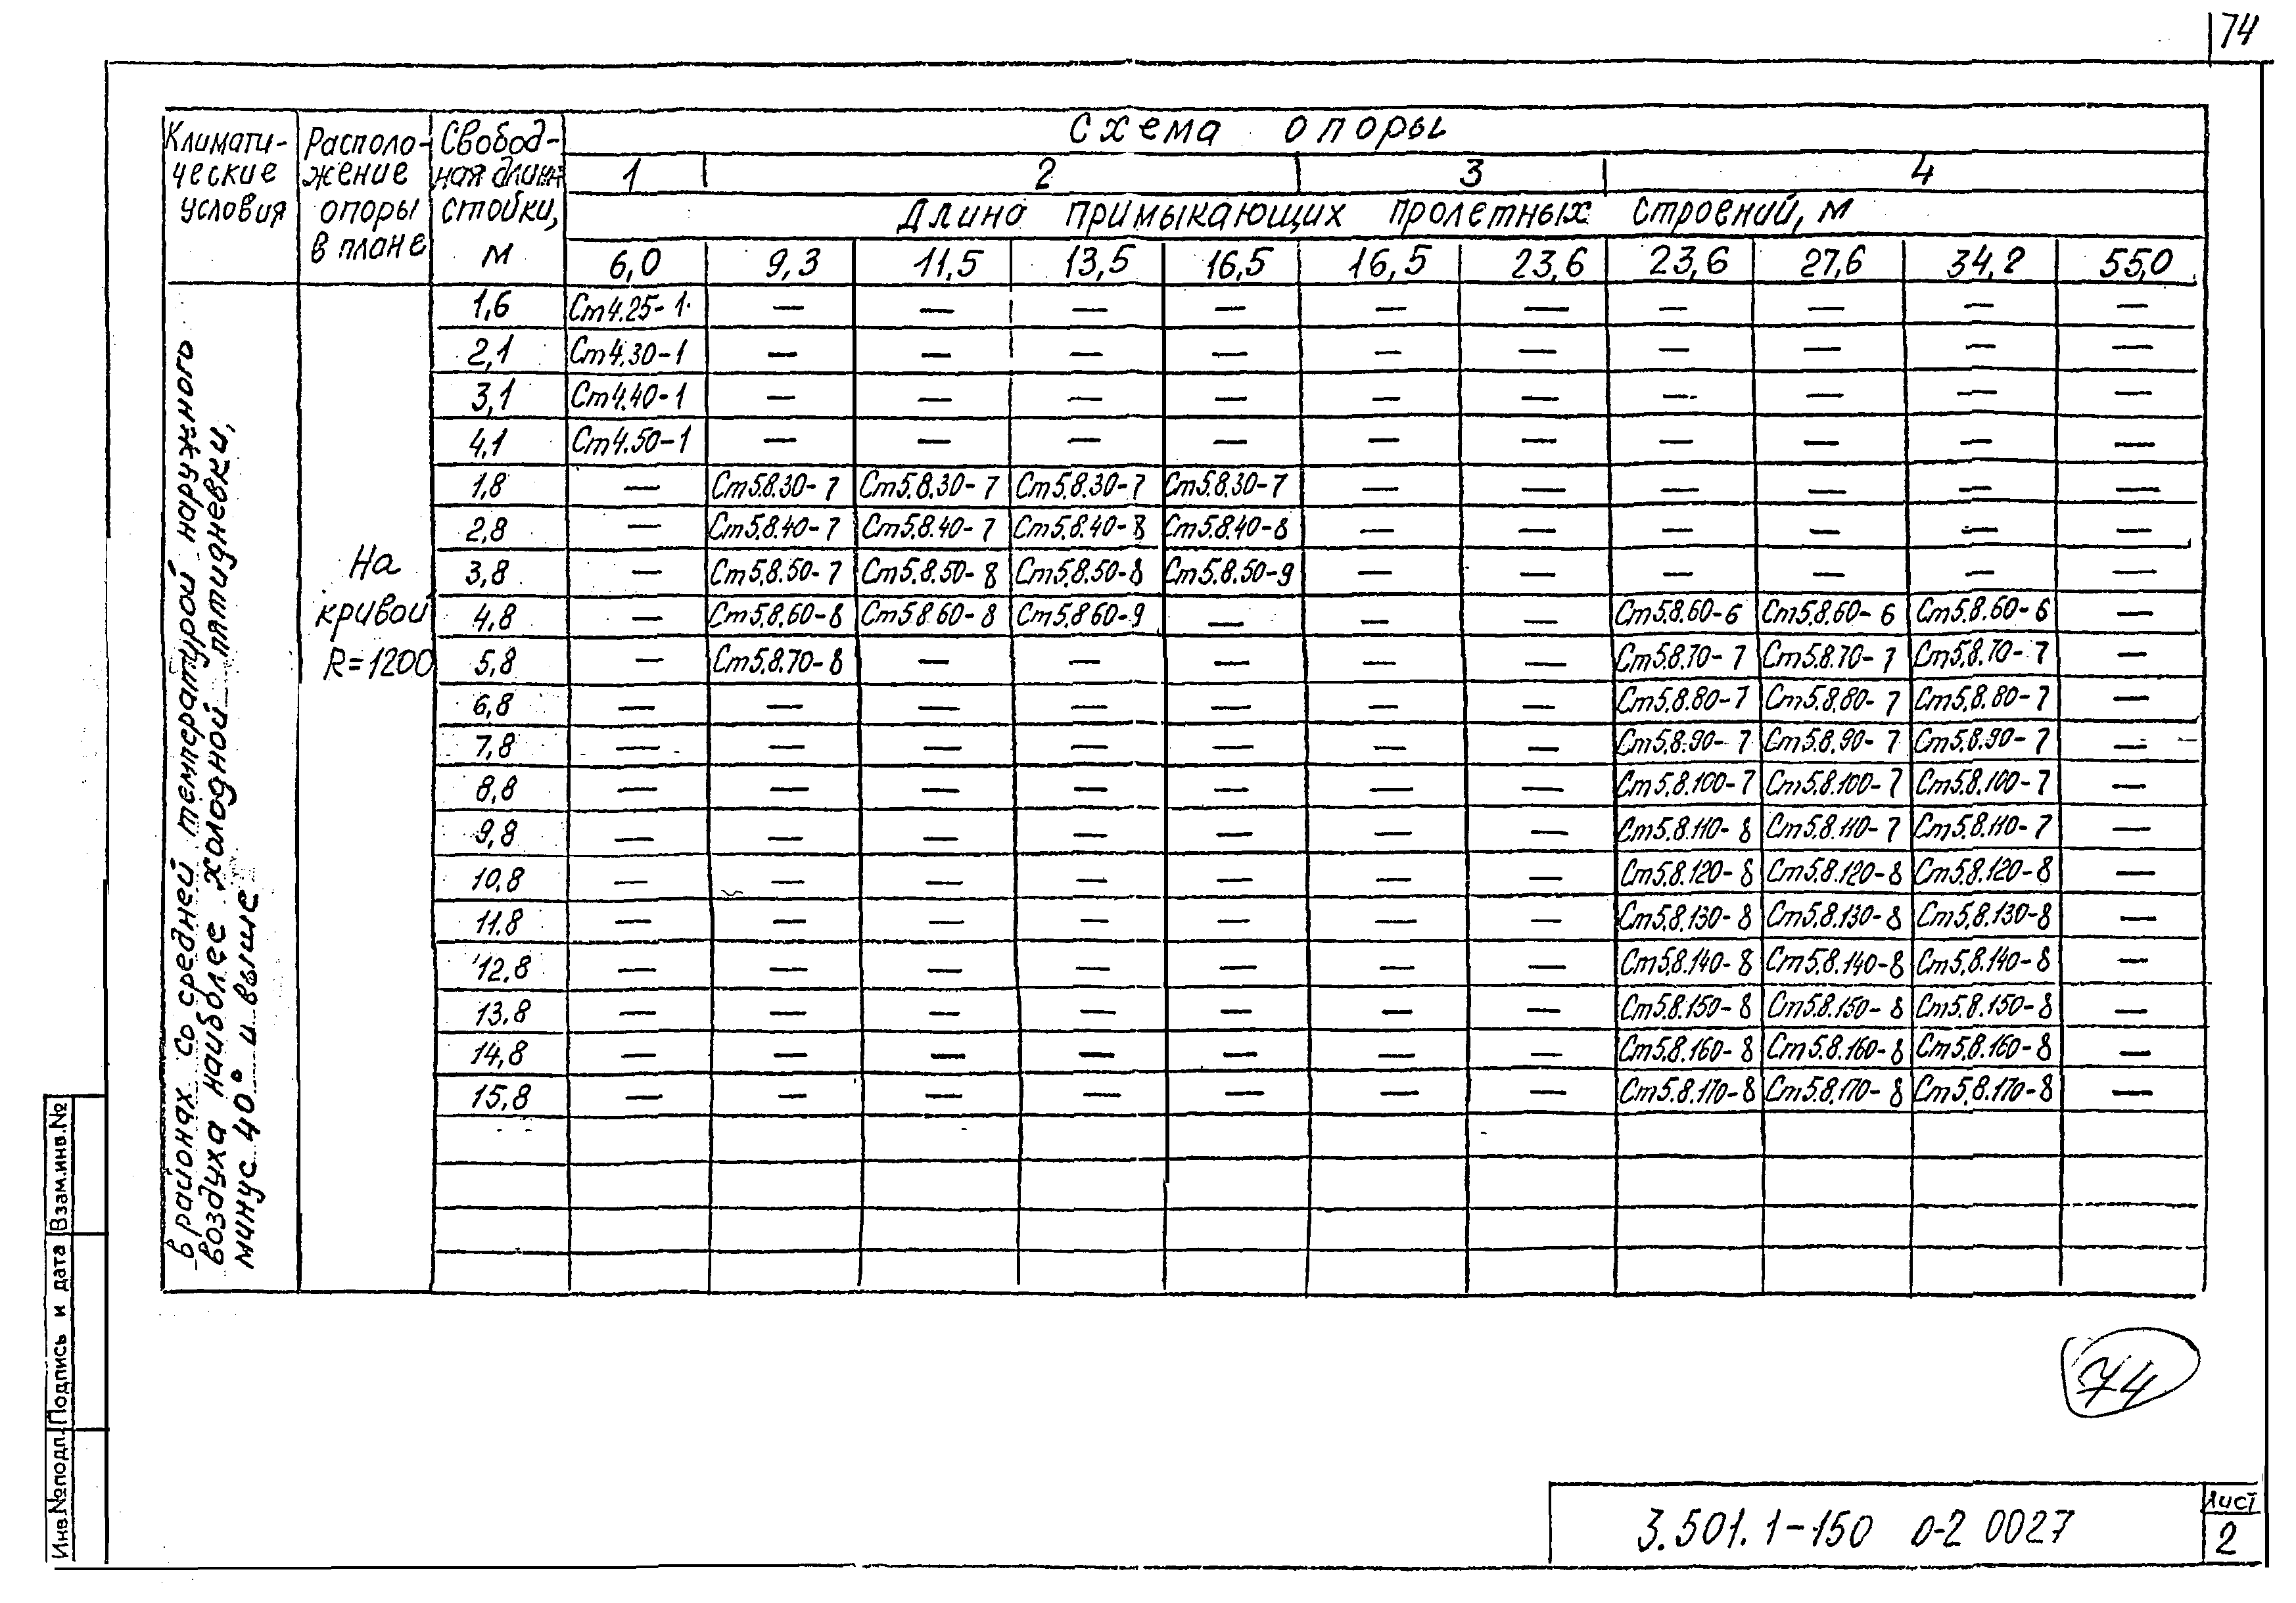 74
Климати-
ческие
условия
Располо-
жение
опоры
в плане
Свобод-
ная длина
стойки,
м
Схема опоры
1 2 3 4
Длина примыкающих пролетных строений, м
6,0 9,3 11,5 13,5 16,5 16,5 23,6 23,6 27,6 34,2 55,0
В районах со средней температурой наружного
воздуха наиболее холодной пятидневки,
минус 40° и выше
На
кривой
R=1200
1,6 Ст4.25-1 — — — — — — — — — —
2,1 Ст4.30-1 — — — — — — — — — —
3,1 Ст4.40-1 — — — — — — — — — —
4,1 Ст4.50-1 — — — — — — — — — —
1,8 — Ст5.8.30-7 Ст5.8.30-7 Ст5.8.30-7 Ст5.8.30-7 — — — — — —
2,8 — Ст5.8.40-7 Ст5.8.40-7 Ст5.8.40-8 Ст5.8.40-8 — — — — — —
3,8 — Ст5.8.50-7 Ст5.8.50-8 Ст5.8.50-8 Ст5.8.50-9 — — — — — —
4,8 — Ст5.8.60-8 Ст5.8.60-8 Ст5.8.60-9 — — — Ст5.8.60-6 Ст5.8.60-6 Ст5.8.60-6 —
5,8 — Ст5.8.70-8 — — — — — Ст5.8.70-7 Ст5.8.70-7 Ст5.8.70-7 —
6,8 — — — — — — — Ст5.8.80-7 Ст5.8.80-7 Ст5.8.80-7 —
7,8 — — — — — — — Ст5.8.90-7 Ст5.8.90-7 Ст5.8.90-7 —
8,8 — — — — — — — Ст5.8.100-7 Ст5.8.100-7 Ст5.8.100-7 —
9,8 — — — — — — — Ст5.8.110-8 Ст5.8.110-7 Ст5.8.110-7 —
10,8 — — — — — — — Ст5.8.120-8 Ст5.8.120-8 Ст5.8.120-8 —
11.8 — — — — — — — Ст5.8.130-8 Ст5.8.130-8 Ст5.8.130-8 —
12,8 — — — — — — — Ст5.8.140-8 Ст5.8.140-8 Ст5.8.140-8 —
13,8 — — — — — — — Ст5.8.150-8 Ст5.8.150-8 Ст5.8.150-8 —
14,8 — — — — — — — Ст5.8.160-8 Ст5.8.160-8 Ст5.8.160-8 —
15,8 — — — — — — — Ст5.8.170-8 Ст5.8.170-8 Ст5.8.170-8 —
74
Инв.№подп. Подпись и дата Взам.инв.№
3.501.1-150 0-2 0027
Лист
2